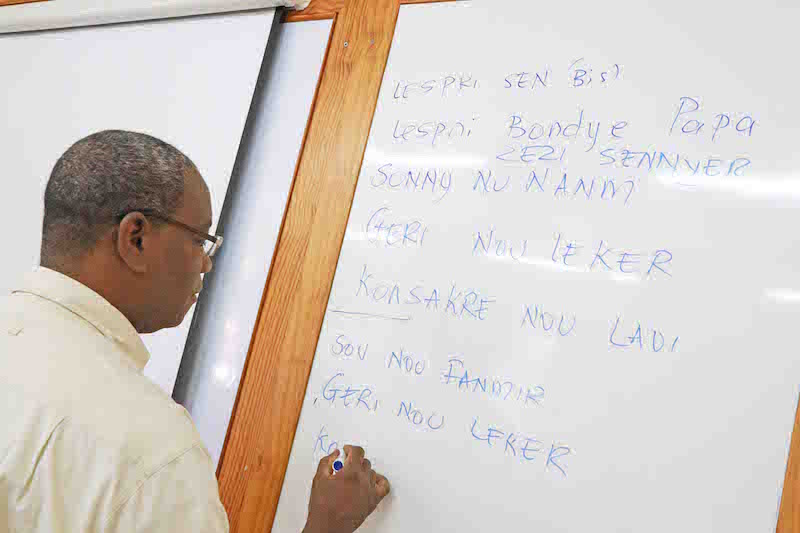 LESPRI SEN (Bis)
Lespri Bondye Papa
JEZI SENNYER
SONNY NU NANM
GERI NOU LEKER
KONSAKRE NOU LAVI
SOU NOU FANMIR
GERI NOU LEKER
Ko